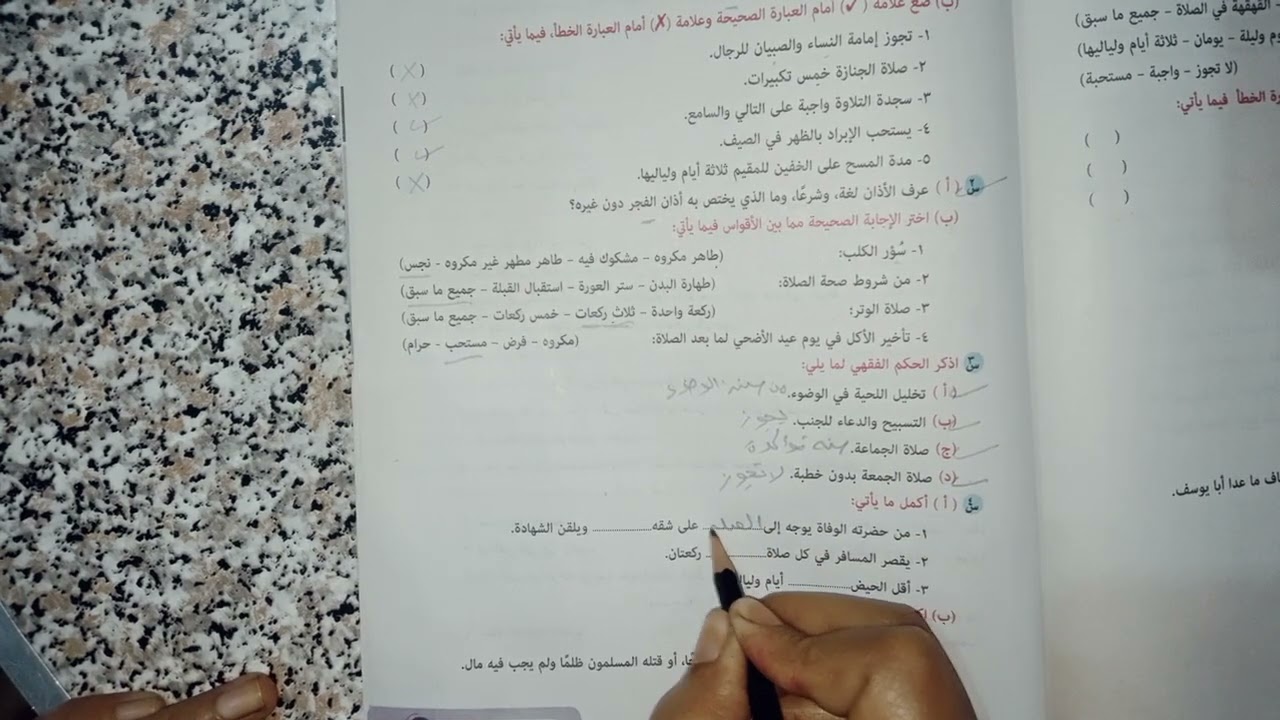 (ب) ضع علامة (✓) أمام العبارة الصحيحة وعلامة (✗) أمام العبارة الخطأ، فيما يأتي:
١- تجوز إمامة النساء والصبيان للرجال. (X)
٢- صلاة الجنازة خمس تكبيرات. (X)
٣- سجدة التلاوة واجبة على التالي والسامع. (✓)
٤- يستحب الإبراد بالظهر في الصيف. (✓)
٥- مدة المسح على الخفين للمقيم ثلاثة أيام ولياليها. (X)
س٢ (أ) عرف الأذان لغة، وشرعًا، وما الذي يختص به أذان الفجر دون غيره؟
(ب) اختر الإجابة الصحيحة مما بين الأقواس فيما يأتي:
١- سُؤر الكلب: (طاهر مكروه - مشكوك فيه - طاهر مطهر غير مكروه - نجس)
٢- من شروط صحة الصلاة: (طهارة البدن - ستر العورة - استقبال القبلة - جميع ما سبق)
٣- صلاة الوتر: (ركعة واحدة - ثلاث ركعات - خمس ركعات - جميع ما سبق)
٤- تأخير الأكل في يوم عيد الأضحي لما بعد الصلاة: (مكروه - فرض - مستحب - حرام)
س٣ اذكر الحكم الفقهي لما يلي:
(أ) تخليل اللحية في الوضوء. من سنه
(ب) التسبيح والدعاء للجنب. يجوز
(ج) صلاة الجماعة. سنه
(د) صلاة الجمعة بدون خطبة. لا تجوز
س٤ (أ) أكمل ما يأتي:
١- من حضرته الوفاة يوجه إلى على شقه .......... ويلقن الشهادة.
٢- يقصر المسافر في كل صلاة .......... ركعتان.
٣- أقل الحيض .......... أيام
(ب)
أو قتله المسلمون ظلمًا ولم يجب فيه مال.
القهقهة في الصلاة - جميع ما سبق)
وليلة - يومان - ثلاثة أيام ولياليها)
(لا تجوز - واجبة - مستحبة)
الخطأ فيما يأتي:
( )
( )
( )
ما عدا أبا يوسف.